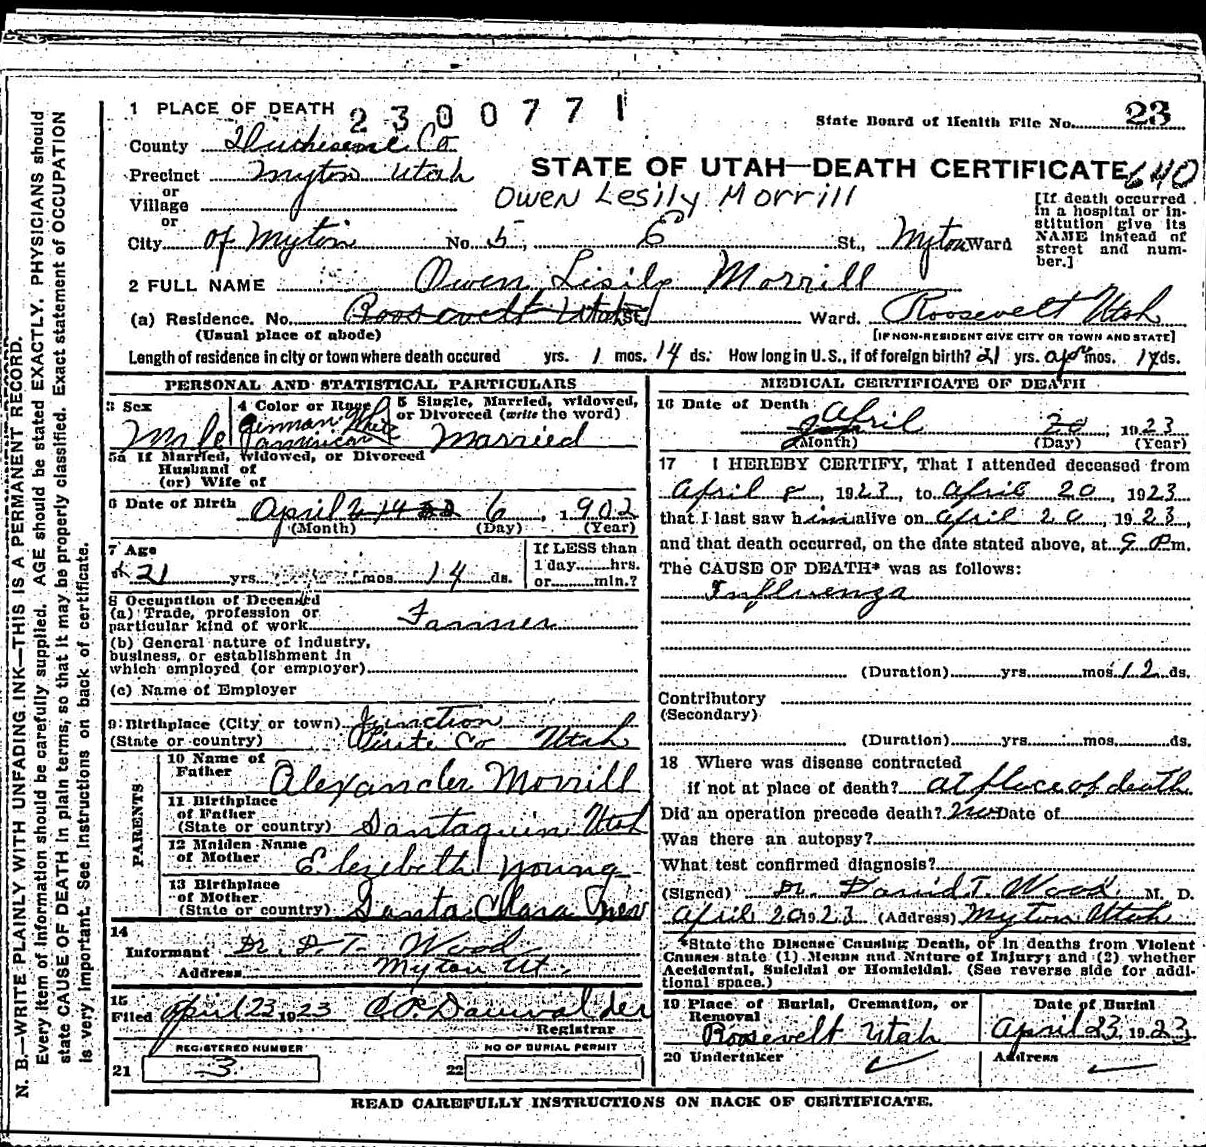 1 PLACE OF DEATH 2300771
State Board of Health File No. 23
County Duchesne Co.
STATE OF UTAH—DEATH CERTIFICATE 640
Precinct Myton Utah
Owen Lesily Morrill
or
Village
or
City of Myton No. 5, E St., Myton Ward
[If death occurred
in a hospital or in-
stitution give its
NAME instead of
street and num-
ber.]
2 FULL NAME Owen Lisily Morrill
(a) Residence. No. Roosevelt Utah St. Ward. Roosevelt Utah
(Usual place of abode) [IF NON-RESIDENT GIVE CITY OR TOWN AND STATE]
Length of residence in city or town where death occured yrs. 1 mos. 14 ds. How long in U.S., if of foreign birth? 21 yrs. mos. 14 ds.
PERSONAL AND STATISTICAL PARTICULARS
3 Sex Male
4 Color or Race German White American
5 Single, Married, widowed,
or Divorced (write the word)
Married
5a If Married, Widowed, or Divorced
Husband of
(or) Wife of
6 Date of Birth April 6, 1902
(Month) (Day) (Year)
7 Age
21 yrs. mos. 14 ds.
If LESS than
1 day......hrs.
or......min.?
8 Occupation of Deceased
(a) Trade, profession or
particular kind of work Farmer
(b) General nature of industry,
business, or establishment in
which employed (or employer)
(c) Name of Employer
9 Birthplace (City or town) Junction
(State or country) Piute Co Utah
PARENTS
10 Name of
Father Alexander Morrill
11 Birthplace
of Father
(State or country) Santaquin Utah
12 Maiden Name
of Mother Elezebeth Young
13 Birthplace
of Mother
(State or country) Santa Clara
14
Informant Dr. D. T. Wood
Address Myton Ut.
15
Filed April 23 1923
Registrar
REGISTERED NUMBER
21 3
NO OF BURIAL PERMIT
22
MEDICAL CERTIFICATE OF DEATH
16 Date of Death April 20, 1923
(Month) (Day) (Year)
17 I HEREBY CERTIFY, That I attended deceased from
April 8, 1923, to April 20, 1923
that I last saw him alive on April 20, 1923,
and that death occurred, on the date stated above, at 9 P.m.
The CAUSE OF DEATH* was as follows:
Influenza
(Duration) yrs. mos. 12 ds.
Contributory
(Secondary)
(Duration) yrs. mos. ds.
18 Where was disease contracted
if not at place of death? at place of death
Did an operation precede death? no Date of
Was there an autopsy?
What test confirmed diagnosis?
(Signed) Dr. David T. Wood M. D.
April 20 1923 (Address) Myton Utah
*State the Disease Causing Death, or in deaths from Violent
Causes state (1) Means and Nature of Injury; and (2) whether
Accidental, Suicidal or Homicidal. (See reverse side for addi-
tional space.)
19 Place of Burial, Cremation, or
Removal
Roosevelt Utah
Date of Burial
April 23, 1923
20 Undertaker
Address
READ CAREFULLY INSTRUCTIONS ON BACK OF CERTIFICATE.
N. B.—WRITE PLAINLY WITH UNFADING INK—THIS IS A PERMANENT RECORD.
Every item of information should be carefully supplied. AGE should be stated EXACTLY. PHYSICIANS should
state CAUSE OF DEATH in plain terms, so that it may be properly classified. Exact statement of OCCUPATION
is very important. See instructions on back of certificate.